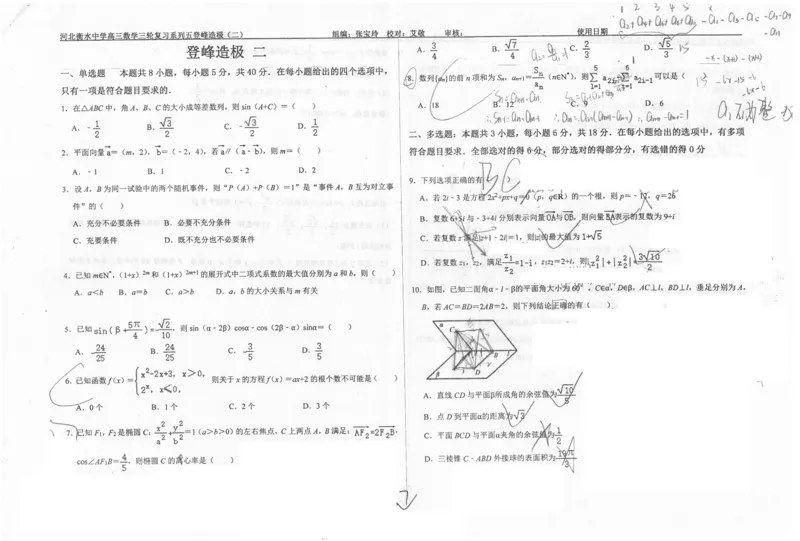 河北衡水中学高三数学三轮复习系列五登峰造极（二）
组编：张宝玲 校对：艾敬 审核： 使用日期
登峰造极 二
一、单选题 本题共8小题，每小题5分，共40分．在每小题给出的四个选项中，
只有一项是符合题目要求的．
1．在△ABC中，角A、B、C的大小成等差列，则sin（A+C）=（ ）
A．-1/2 B．√3/2 C．-√3/2 D．1/2
2．平面向量a=（m，2），b=（-2，4），若a//（a-b），则m=（ ）
A．-1 B．1 C．-2 D．2
3．设A、B为同一试验中的两个随机事件，则“P（A）+P（B）=1”是“事件A，B互为对立事
件”的（ ）
A．充分不必要条件 B．必要不充分条件
C．充要条件 D．既不充分也不必要条件
4．已知m∈N*，（1+x）2m和（1+x）2m+1的展开式中二项式系数的最大值分别为a和b，则（ ）
A．a<b B．a=b C．a>b D．a，b的大小关系与m有关
5．已知sin(β+5π/4)=√2/10，则sin（α-2β）cosα-cos（2β-α）sinα=（ ）
A．24/25 B．24/25 C．3/5 D．3/5
6．已知函数f（x）={x²-2x+3，x>0，2ˣ，x≤0，则关于x的方程f（x）=ax+2的根个数不可能是（ ）
A．0个 B．1个 C．2个 D．3个
7．已知F1，F2是椭圆C：x²/a²+y²/b²=1（a>b>0）的左右焦点，C上两点A，B满足：AF₂=2F₂B，
cos∠AF1B=4/5，则椭圆C的离心率是（ ）
A．3/4 B．√7/4 C．2/3 D．√5/3
8．数列{an}的前n项和为Sn，an+1=Sn/an（n∈N*），则
可以是（ ）
A．18 B．12 C．9 D．6
二、多选题：本题共3小题，每小题6分，共18分．在每小题给出的选项中，有多项
符合题目要求．全部选对的得6分，部分选对的得部分分，有选错的得0分
BC
9．下列选项正确的有（ ）
A．若2i-3是方程2x²+px+q=0（p，q∈R）的一个根，则p=-12，q=26
B．复数6+5i与-3+4i分别表示向量OA与OB，则向量BA表示的复数为9+i
C．若复数z满足|z+1-2i|=1，则|z|的最大值为1+√5
D．若复数z1，z2，满足z1/z2=1-i，z1z2=2+i，则|z1²|+|z2²|=3√10/2
10．如图，已知二面角α-l-β的平面角大小为60°，C∈α，D∈β，AC⊥l，BD⊥l，垂足分别为A，
B，若AC=BD=2AB=2，则下列结论正确的有（ ）
A．直线CD与平面β所成角的余弦值为√10/5
B．点D到平面α的距离为√3
C．平面BCD与平面α夹角的余弦值为1/2
D．三棱锥C-ABD外接球的表面积为19π/3